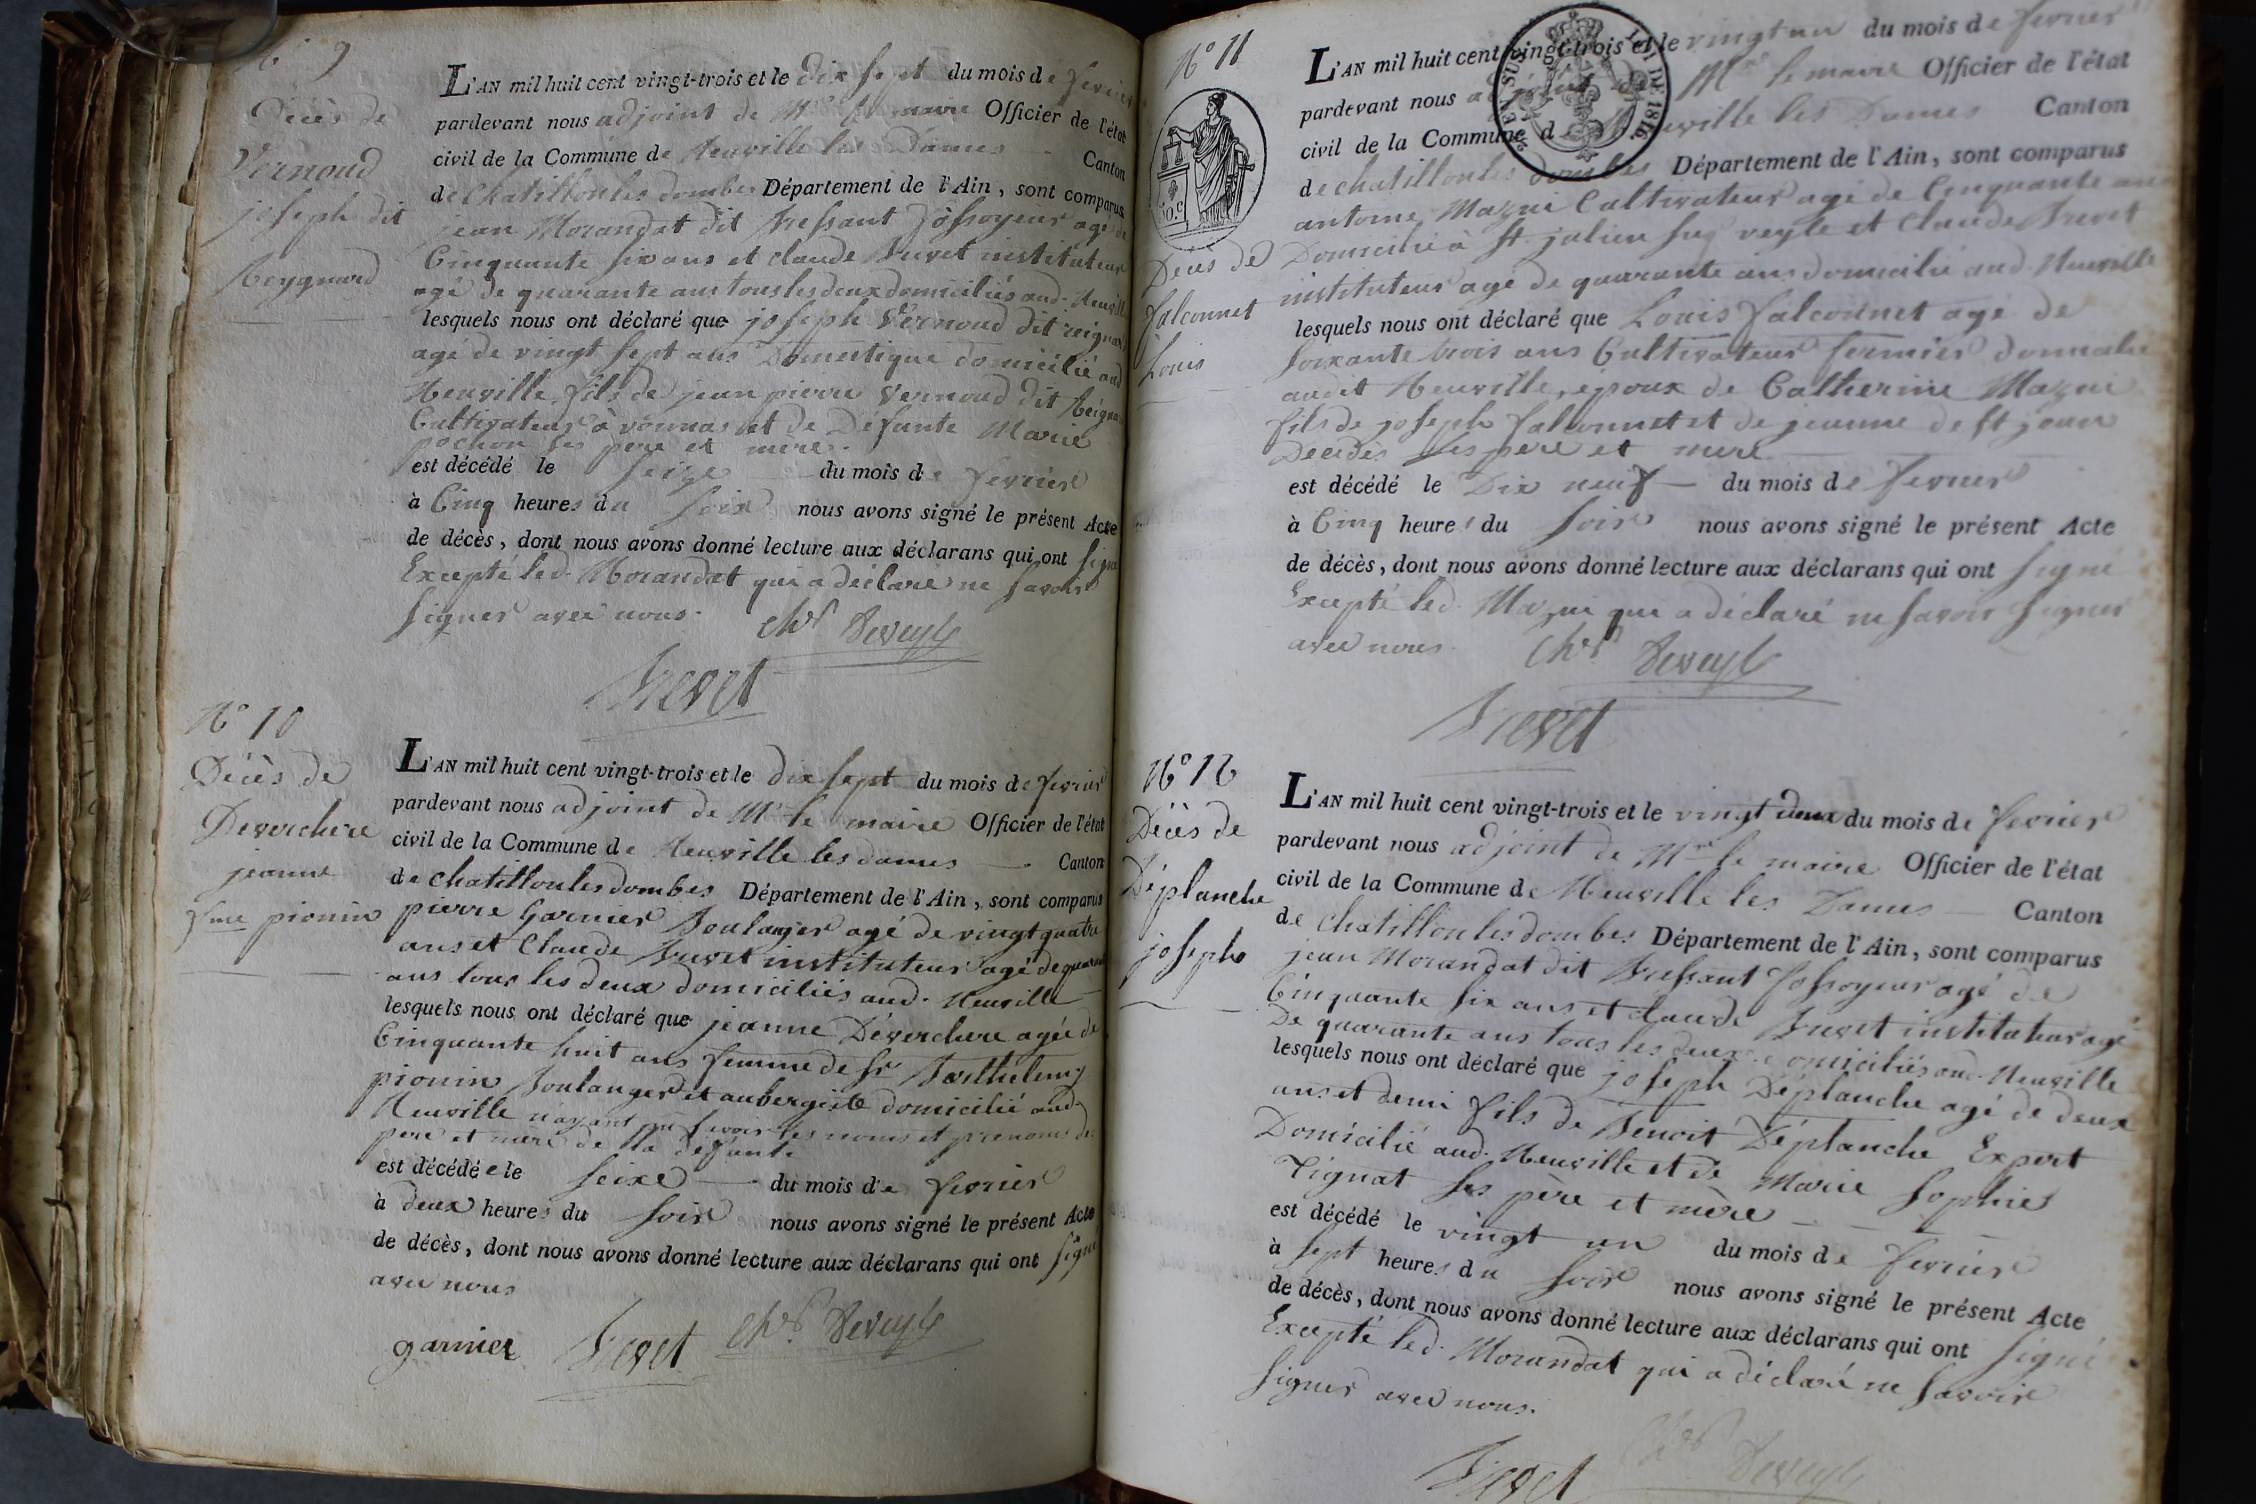 N° 9
Décès de
Vernoud
joseph dit
Reygnard
L'AN mil huit cent vingt-trois et le dix sept du mois de fevrier
pardevant nous adjoint de Mr le maire Officier de l'état
civil de la Commune de Neuville les Dames Canton
de chatillon les dombes Département de l'Ain, sont comparus
jean Morandat dit Bressant fossoyeur agé de
Cinquante six ans et claude Buvet instituteur
agé de quarante ans tous les deux domiciliés aud. Neuville
lesquels nous ont déclaré que joseph Vernoud dit reignard
agé de vingt sept ans Domestique domicilié aud
Neuville, fils de jean pierre Vernoud dit Reignard
Cultivateur à vonnas et de Défunte Marie
pochon ses pere et mere.
est décédé le seize du mois de fevrier
à Cinq heures du soir nous avons signé le présent Acte
de décès, dont nous avons donné lecture aux déclarans qui ont signé
Excepté led. Morandat qui a déclaré ne savoir
signer avec nous.
chr Deveyle
N° 10
Décès de
Deverchere
jeanne
fme pionin
L'AN mil huit cent vingt-trois et le dix sept du mois de fevrier
pardevant nous adjoint de Mr le maire Officier de l'état
civil de la Commune de Neuville les dames Canton
de chatillon les dombes Département de l'Ain, sont comparus
pierre Garnier Boulanger agé de vingt quatre
ans et Claude Buvet instituteur agé de quarante
ans tous les deux domiciliés aud. Neuville
lesquels nous ont déclaré que jeanne Déverchere agée de
Cinquante huit ans femme de Sr Barthélemy
pionin Boulanger et aubergiste domicilié aud.
Neuville n'ayant pu savoir les noms et prenoms des
pere et mere de la défunte
est décédée le seize du mois de fevrier
à deux heures du soir nous avons signé le présent Acte
de décès, dont nous avons donné lecture aux déclarans qui ont signé
avec nous
garnier chr Deveyle
N° 11
50.C
Décès de
falconnet
Louis
L'AN mil huit cent vingt-trois et le vingt un du mois de fevrier
pardevant nous adjoint de Mr le maire Officier de l'état
civil de la Commune de Neuville les Dames Canton
de chatillon les dombes Département de l'Ain, sont comparus
antoine Mazui Cultivateur agé de Cinquante ans
Domicilié à St. julien sur veyle et Claude Buvet
instituteur agé de quarante ans domicilié aud. Neuville
lesquels nous ont déclaré que Louis falconnet agé de
soixante trois ans Cultivateur fermier domicilié
audit Neuville, époux de Catherine Mazui
fils de joseph falconnet et de jeanne de St jean
Decédés ses pere et mere
est décédé le Dix neuf du mois de fevrier
à Cinq heures du soir nous avons signé le présent Acte
de décès, dont nous avons donné lecture aux déclarans qui ont signé
Excepté led. Mazui qui a déclaré ne savoir signer
avec nous.
chr Deveyle
N° 12
Décès de
Déplanche
joseph
L'AN mil huit cent vingt-trois et le vingt deux du mois de fevrier
pardevant nous adjoint de Mr le maire Officier de l'état
civil de la Commune de Neuville les Dames Canton
de chatillon les dombes Département de l'Ain, sont comparus
jean Morandat dit Bressant fossoyeur agé de
Cinquante six ans et claude Buvet instituteur agé
De quarante ans tous les deux domiciliés aud. Neuville
lesquels nous ont déclaré que joseph Déplanche agé de deux
ans et demi fils de Benoit Déplanche Expert
Domicilié aud. Neuville et de Marie Sophie
Tignat ses père et mère
est décédé le vingt un du mois de fevrier
à sept heures du soir nous avons signé le présent Acte
de décès, dont nous avons donné lecture aux déclarans qui ont signé
Excepté led. Morandat qui a déclaré ne savoir
signer avec nous.
chr Deveyle